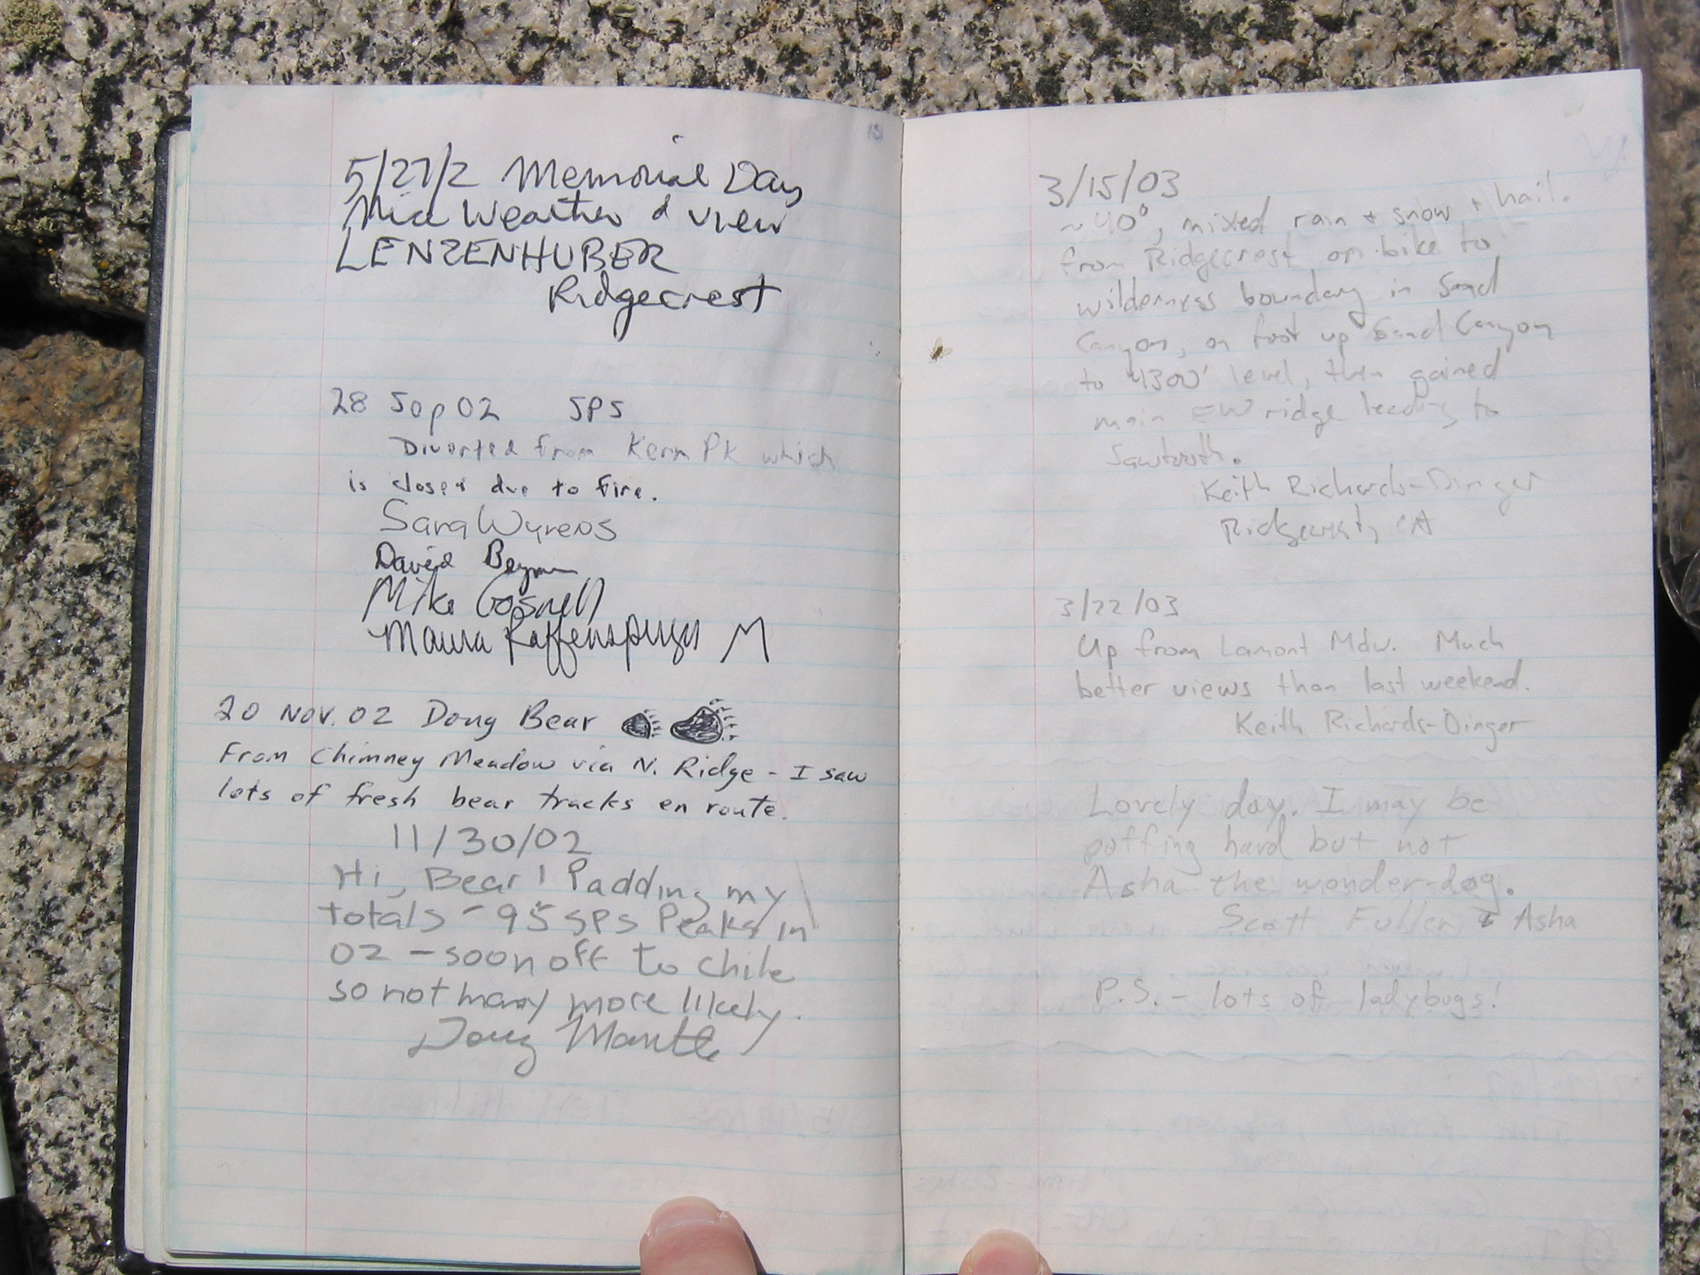 5/27/2 Memorial Day
Nice Weather & view
LENZENHUBER
Ridgecrest
28 Sep 02 SPS
Diverted from Kern Pk which
is closed due to fire.
Sara Wyrens
David
Mike Gosnell
Maura Raffensperger M
20 NOV. 02 Doug Bear
From Chimney Meadow via N. Ridge - I saw
lots of fresh bear tracks en route.
11/30/02
Hi, Bear! Padding my
totals - 95 SPS Peaks in
02 - soon off to Chile
so not many more likely.
Doug Mantle
3/15/03
~40°, mixed rain + snow + hail.
from Ridgecrest on bike to
wilderness boundary in Sand
Canyon, on foot up Sand Canyon
to 4300' level, then gained
main EW ridge leading to
Sawtooth.
Keith Richards-Dinger
Ridgecrest, CA
3/22/03
Up from Lamont Mdw. Much
better views than last weekend.
Keith Richards-Dinger
Lovely day. I may be
puffing hard but not
Asha the wonder-dog.
Scott Fuller & Asha
P.S. - lots of ladybugs!